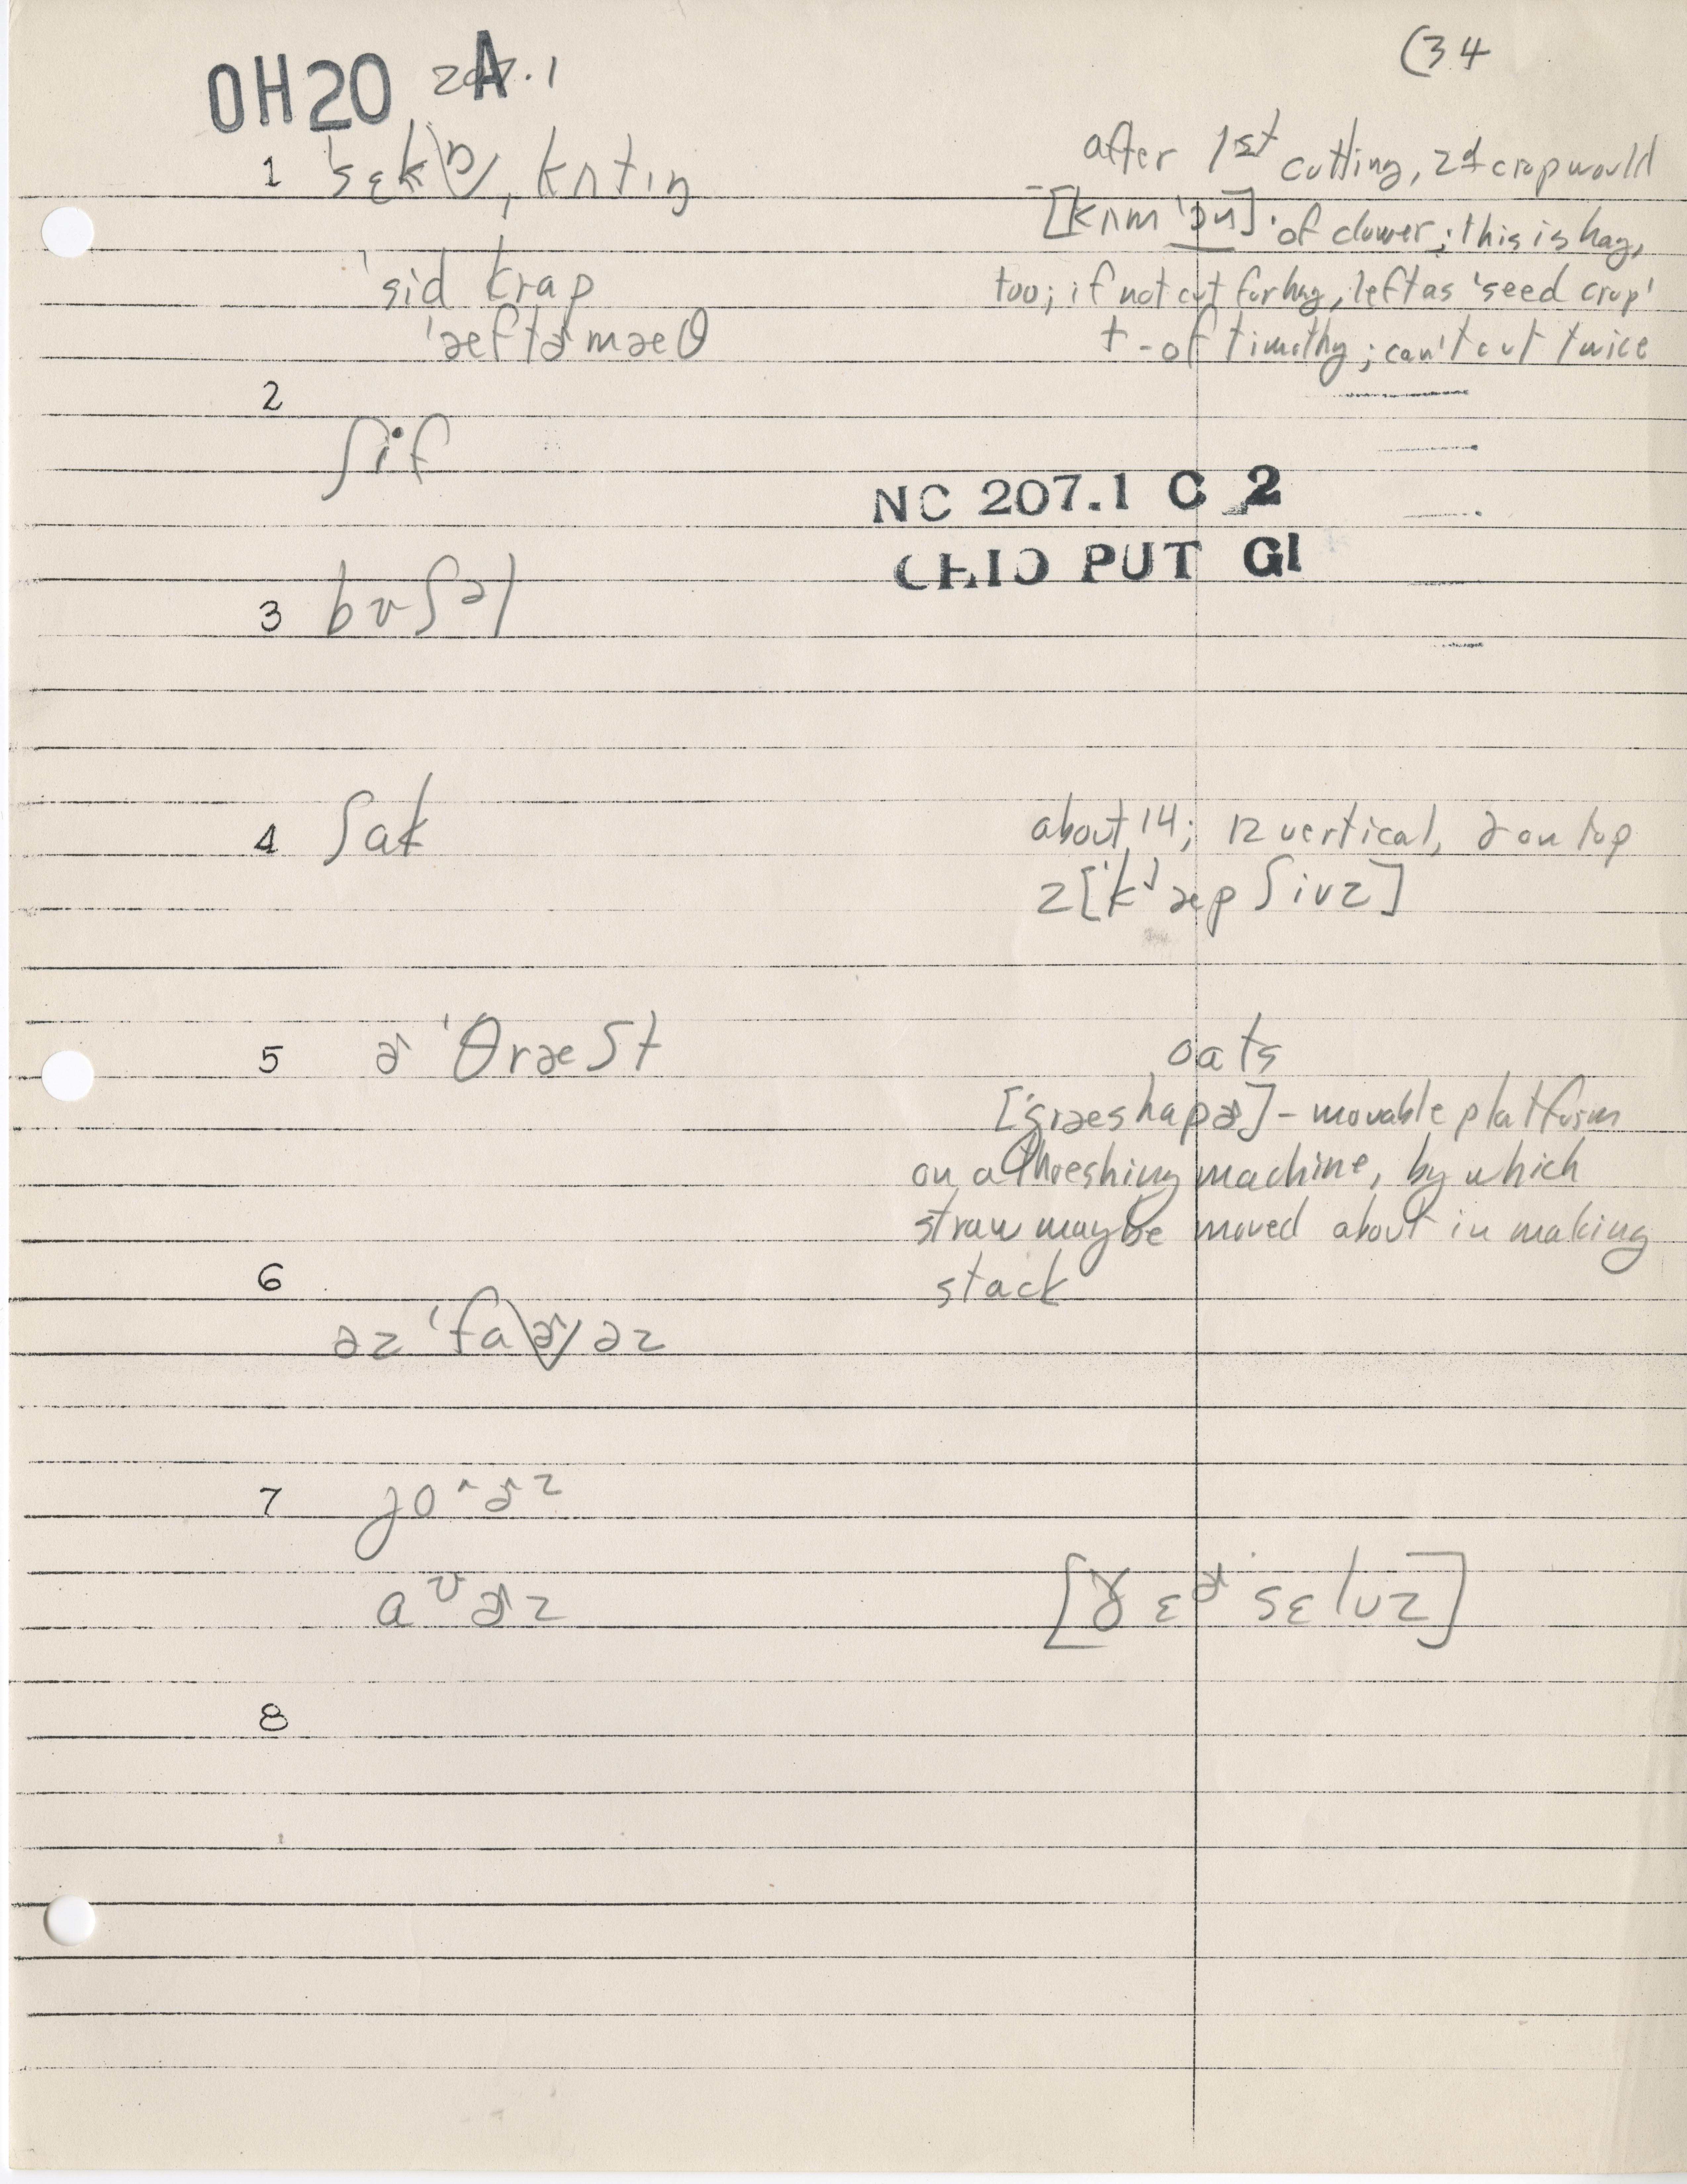 OH20 A 207.1
(34
1 ˈsɛkn̩, kʌtɪŋ
after 1st cutting, 2d crop would
-[kʌm ˈɔn] of clower; this is hay,
ˈsid krap
too; if not cut for hay, left as 'seed crop'
ˈæftɚmæθ
† - of timothy; can't cut twice
2
ʃif
NC 207.1 C 2
OHIO PUT GI
3 bʊʃəl
4 ʃak
about 14; 12 vertical, 2 on top
2[ˈkʲæp ʃivz]
5 ɚ ˈθræʃt
oats
[ˈgræshapɚ] - movable platform
on a threshing machine, by which
straw may be moved about in making
stack
6
əz ˈfaðɚz
7 joˆɚz
aʊɚz
[ðɛɚ sɛlvz]
8